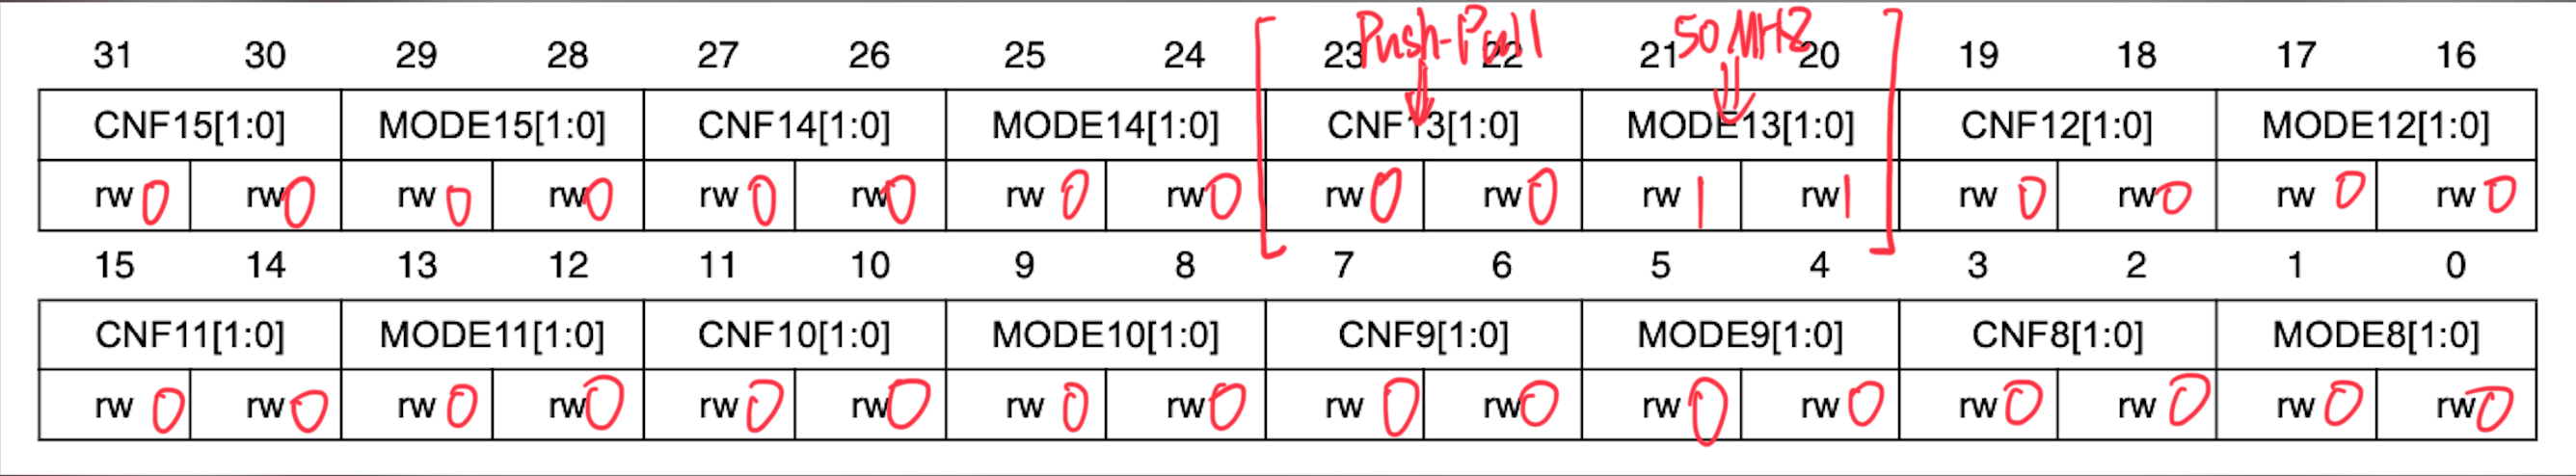 Push-Pull 50MHZ
31 30 29 28 27 26 25 24 23 22 21 20 19 18 17 16
CNF15[1:0] MODE15[1:0] CNF14[1:0] MODE14[1:0] CNF13[1:0] MODE13[1:0] CNF12[1:0] MODE12[1:0]
rw 0 rw 0 rw 0 rw 0 rw 0 rw 0 rw 0 rw 0 rw 0 rw 0 rw 1 rw 1 rw 0 rw 0 rw 0 rw 0
15 14 13 12 11 10 9 8 7 6 5 4 3 2 1 0
CNF11[1:0] MODE11[1:0] CNF10[1:0] MODE10[1:0] CNF9[1:0] MODE9[1:0] CNF8[1:0] MODE8[1:0]
rw 0 rw 0 rw 0 rw 0 rw 0 rw 0 rw 0 rw 0 rw 0 rw 0 rw 0 rw 0 rw 0 rw 0 rw 0 rw 0